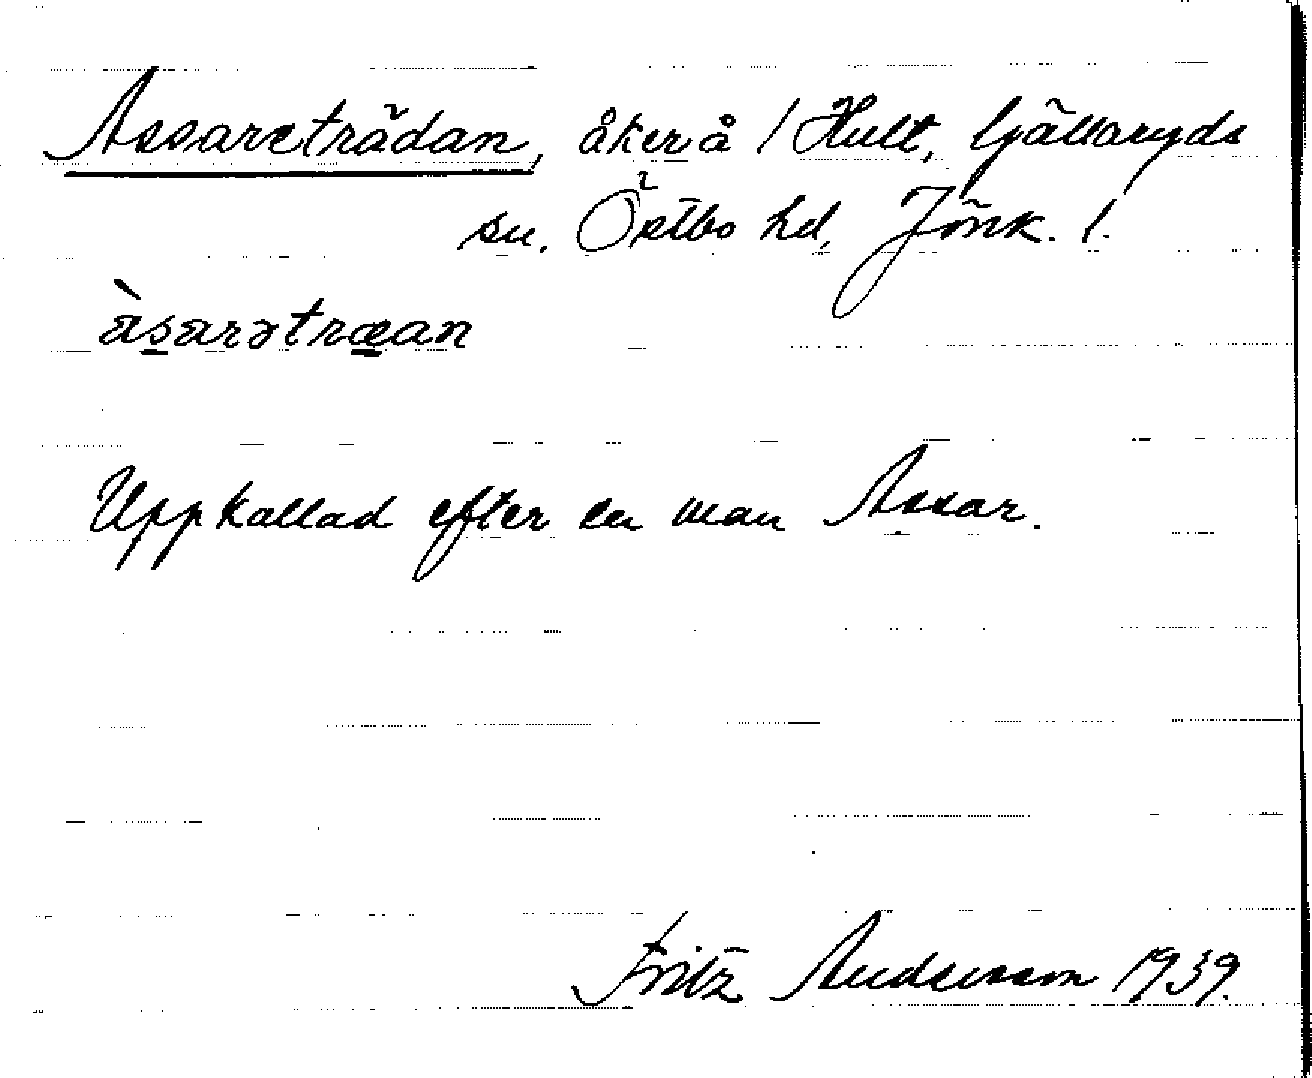 Assareträdan, åker å 1 Hult, Gällaryds
sn. Östbo hd, Jönk. l.
àsarətræan
Uppkallad efter en man Assar.
Fritz Andersson 1939.